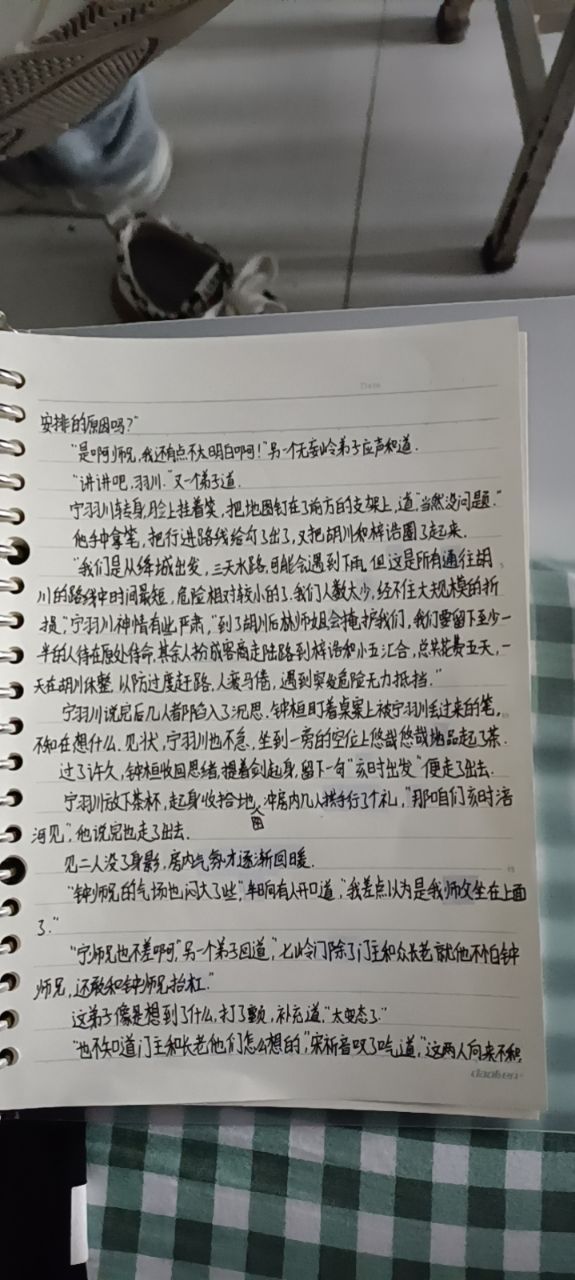 Date
安排的原因吗？"
"是啊师兄，我还有点不大明白啊！"另一个无妄岭弟子应声和道.
"讲讲吧，羽川."又一个弟子道.
宁羽川转身，脸上挂着笑，把地图钉在了前方的支架上，道，"当然没问题."
他手中拿笔，把行进路线给勾了出了，又把胡川和梓浯圈了起来.
"我们是从绛城出发，三天水路，可能会遇到下雨，但这是所有通往胡
川的路线中时间最短，危险相对较小的了.我们人数太少，经不住大规模的折
损，"宁羽川神情有些严肃，"到了胡川后林师姐会掩护我们，我们要留下至少一
半的人待在原处待命，其余人扮成客商走陆路到梓浯和小五汇合，总共花费五天，一
天在胡川休整，以防过度赶路，人疲马倦，遇到突发危险无力抵挡."
宁羽川说完后几人都陷入了沉思.钟桓盯着桌案上被宁羽川丢过来的笔，
不知在想什么.见状，宁羽川也不急，坐到一旁的空位上悠哉悠哉地品起了茶.
过了许久，钟桓收回思绪，提着剑起身，留下一句"亥时出发"便走了出去.
宁羽川放下茶杯，起身收拾地图，冲房内几人拱手行了个礼，"那咱们亥时浯
河见"，他说完也走了出去.
见二人没了身影，房内气氛才逐渐回暖.
"钟师兄的气场也闷大了些，"半晌有人开口道，"我差点以为是我师父坐在上面
了."
"宁师兄也不差啊，"另一个弟子回道，"七岭门除了门主和众长老就他不怕钟
师兄，还敢和钟师兄抬杠."
这弟子像是想到了什么，打了颤，补充道，"太变态了."
"也不知道门主和长老他们怎么想的，"宋祈音叹了口气道，"这两人向来不积